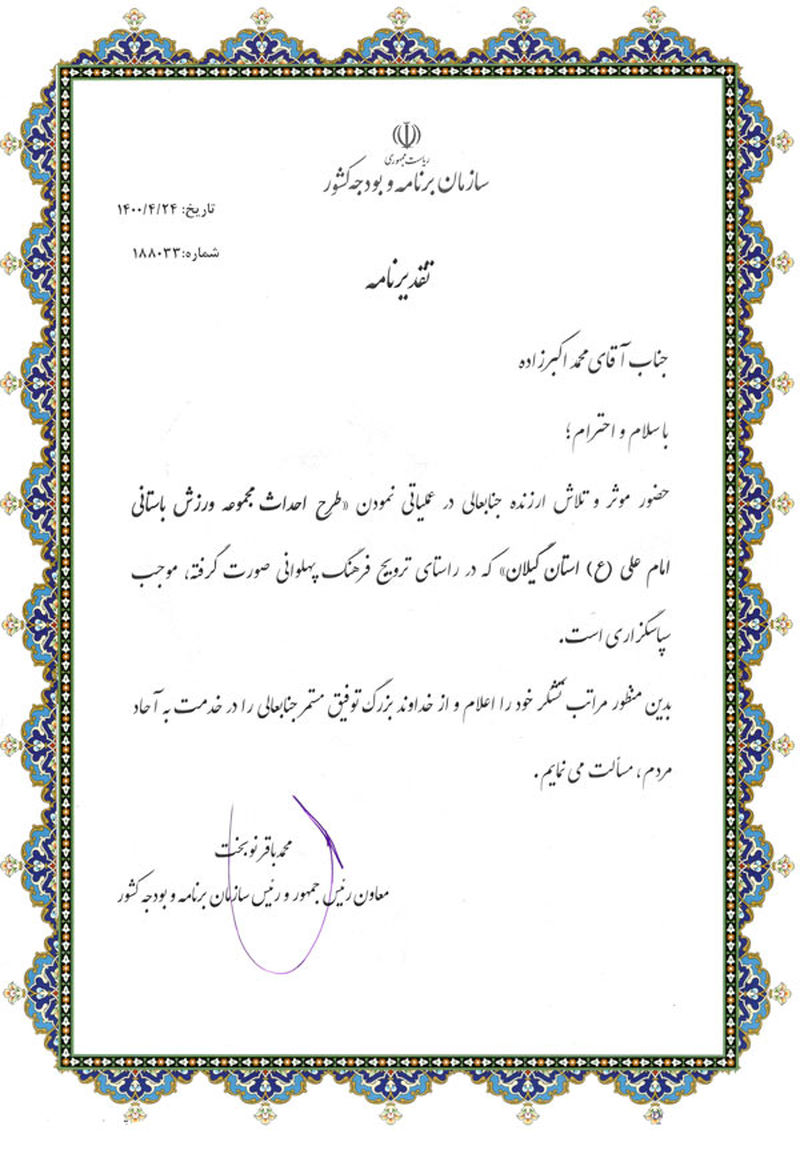 ریاست جمهوری
سازمان برنامه و بودجه کشور
تاریخ: ۱۴۰۰/۴/۲۴
شماره: ۱۸۸۰۳۳
تقدیرنامه
جناب آقای محمد اکبرزاده
با سلام و احترام؛
حضور موثر و تلاش ارزنده جنابعالی در عملیاتی نمودن «طرح احداث مجموعه ورزش باستانی
امام علی (ع) استان گیلان» که در راستای ترویج فرهنگ پهلوانی صورت گرفته، موجب
سپاسگزاری است.
بدین منظور مراتب تشکر خود را اعلام و از خداوند بزرگ توفیق مستمر جنابعالی را در خدمت به آحاد
مردم، مسألت می نمایم.
محمدباقر نوبخت
معاون رئیس جمهور و رئیس سازمان برنامه و بودجه کشور